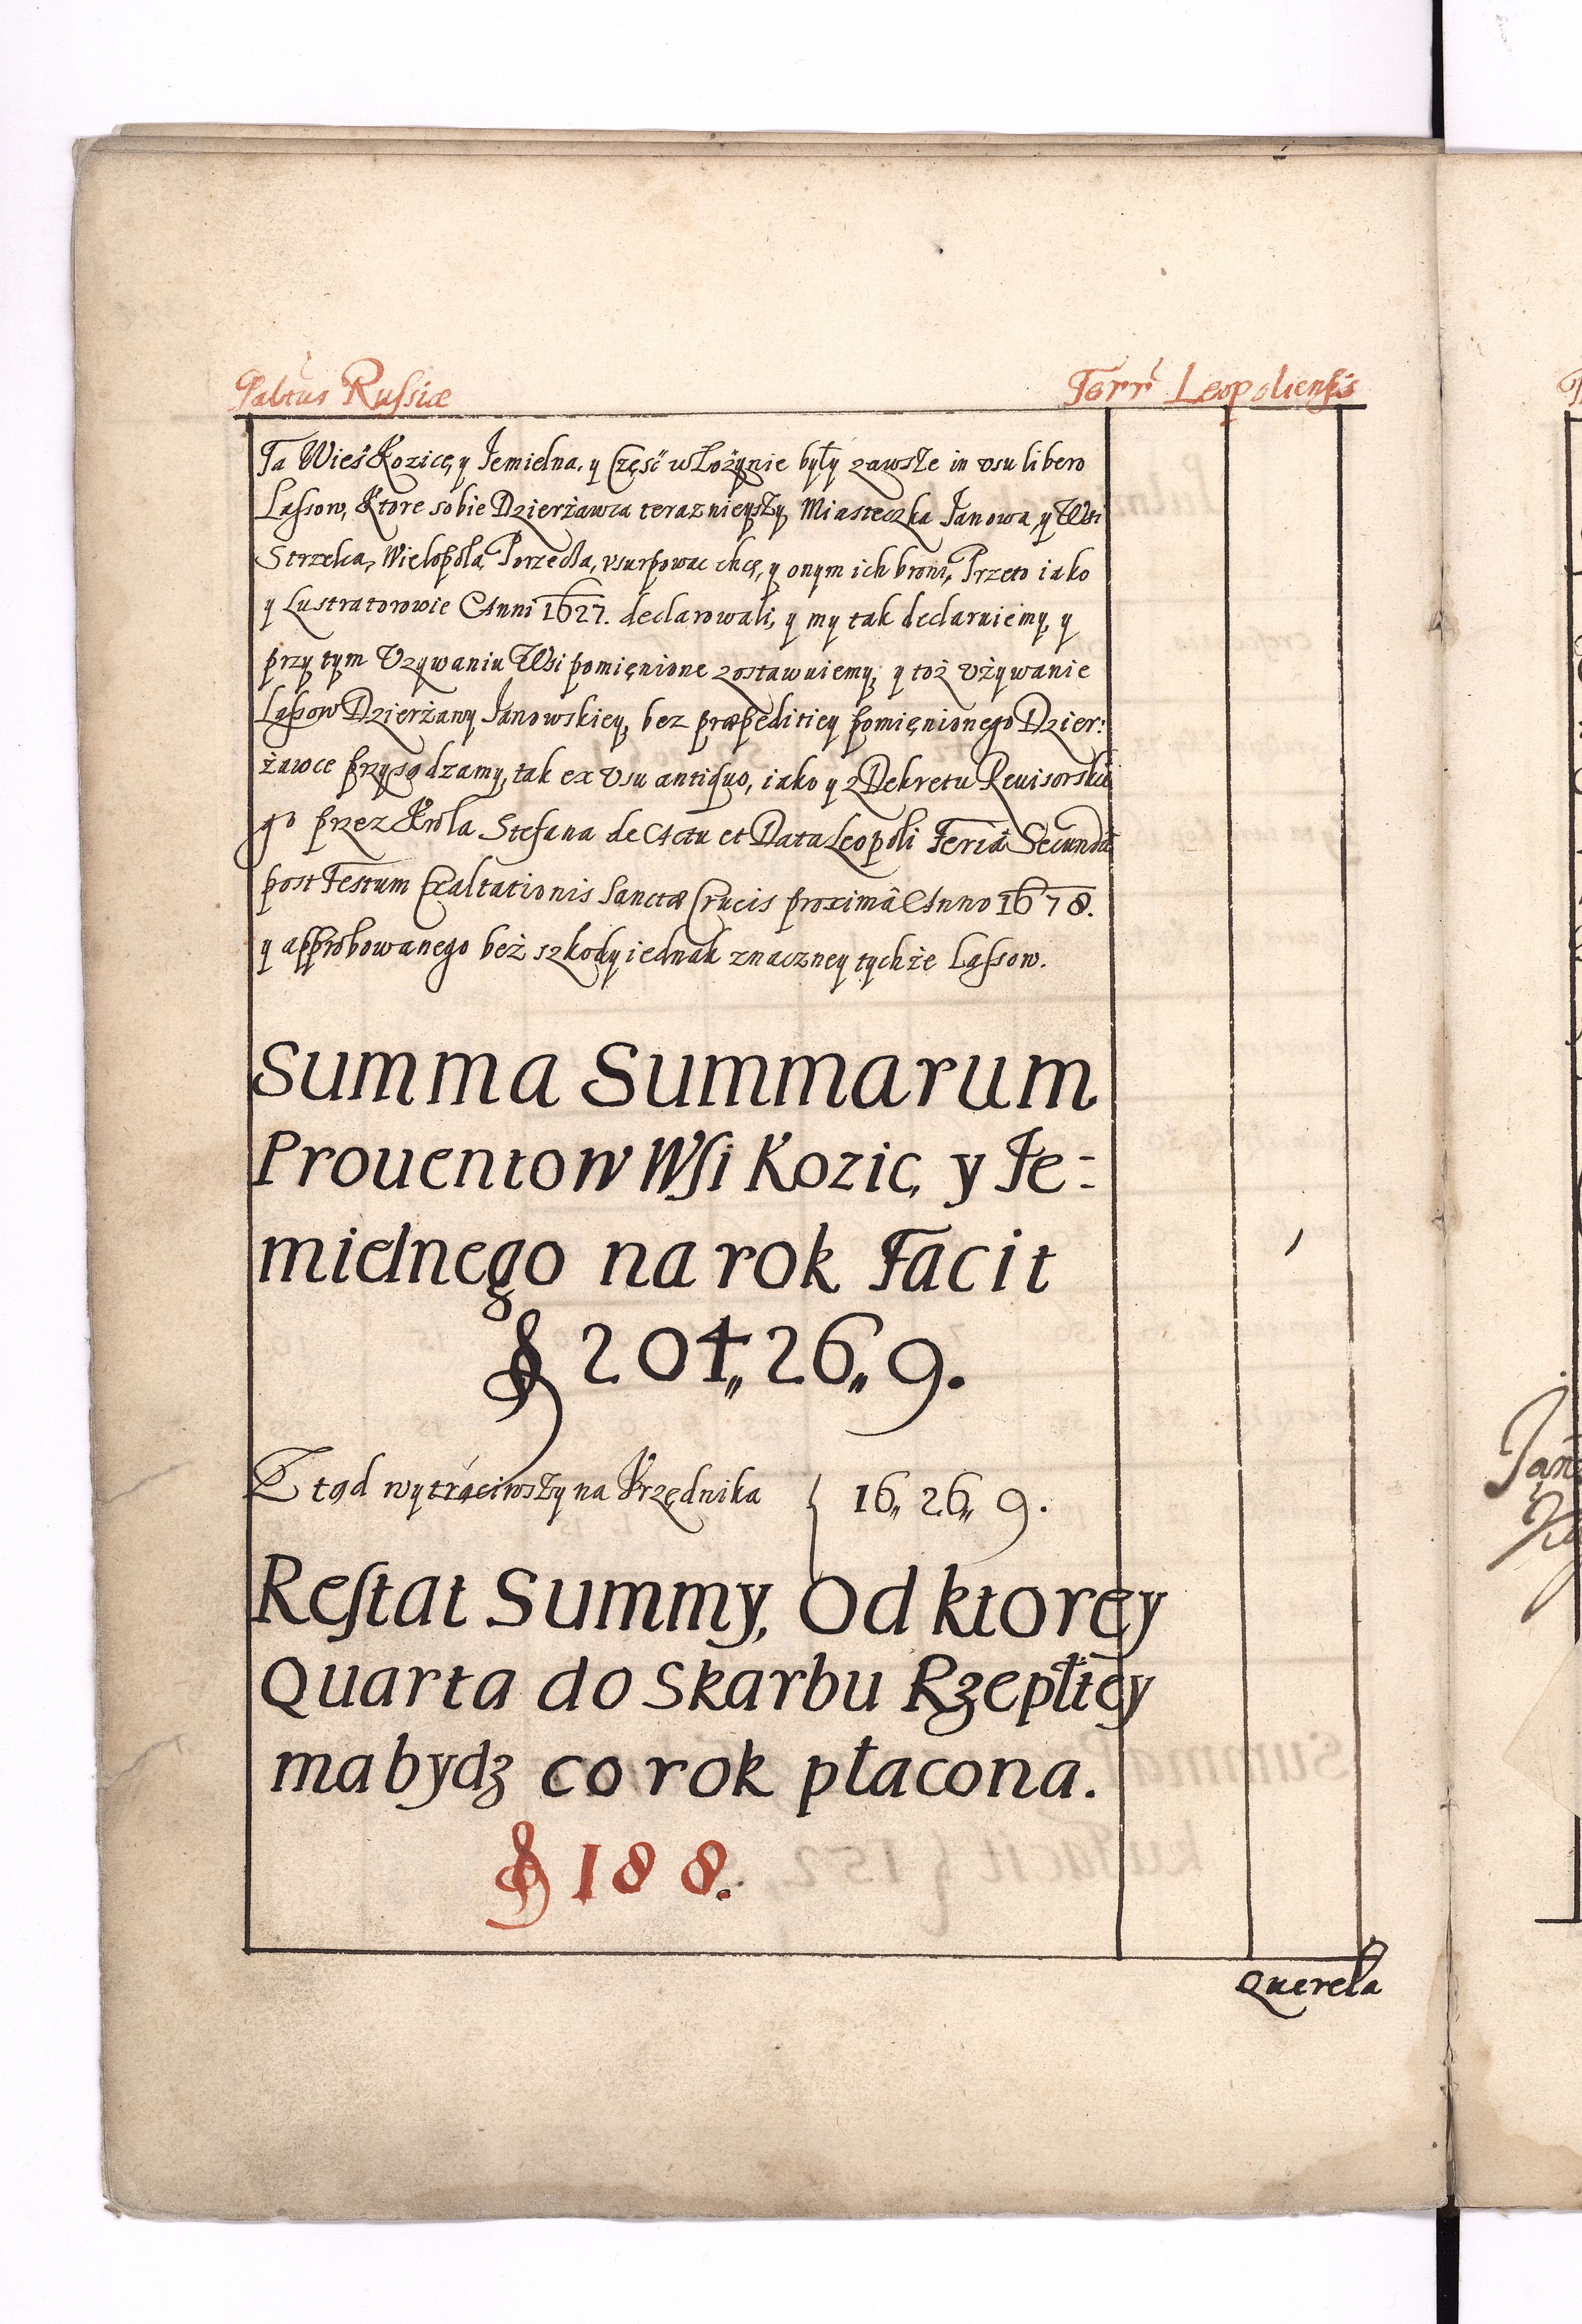 Paltus Russiæ
Terr Leopoliensis
Ta Wieś Kozice, y Jemielna, y Część w Łożynie były zawsze in vsu libero
Lassow, Ktore sobie Dzierżawca teraznieyszy Miasteczka Janowa, y Wsi
Strzelca, Wielopola, Porzecza, vsurpowac chce, y onym ich broni, Przeto iako
y Lustratorowie Anni 1627. declarowali, y my tak declaruiemy, y
przy tym Vzywaniu Wsi pomięnione zostawuiemy; y toż vżywanie
Lassow Dzierżawy Janowskiey, bez præpeditiey pomięnionego Dzier:
żawce przysądzamy, tak ex vsu antiquo, iako y z Dekretu Reuisorskie
go przez Krola Stefana de Actu et Data Leopoli Feriâ Secundâ
post Festum Exaltationis Sanctæ Crucis proximâ Anno 1678.
y approbowanego beż szkody iednak znaczney tychże Lassow.
Summa Summarum
Prouentow Wsi Kozic, y Je-
mielnego na rok Facit
204„ 26„ 9.
Ztąd wytrąciwszy na Vrzędnika 16„ 26„ 9.
Restat Summy, Od ktorey
Quarta do Skarbu Rzepltey
ma bydz co rok płacona.
188.
Querela